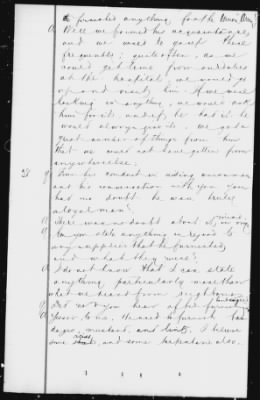 he furnished anything for the Union Army?
A Well we formed his acquaintance,
and we used to go out there
frequently; quite often, as we
would get time from our duties
at the hospital, we would go
up and visit him. If we were
lacking in anything, we would ask
him for it, and if he had it he
would always give it. We got a
great number of things from him
that we could not have gotten from
anywhere else.
21 Q From his conduct in aiding our men
and his conversation with you you
had no doubt he was truly
a loyal man?
A There was no doubt about it, in my mind.
Q Can you state anything in regard to
any supplies that he furnished,
and what they were?
A I do not know that I can state
anything particularly more than
what we heard from neighbors
Q Did not you hear of his furnishing bandages
A Yes sir. He used to furnish ban-
dages, mustard, and lint. I believe
some also, and some turpentine also.